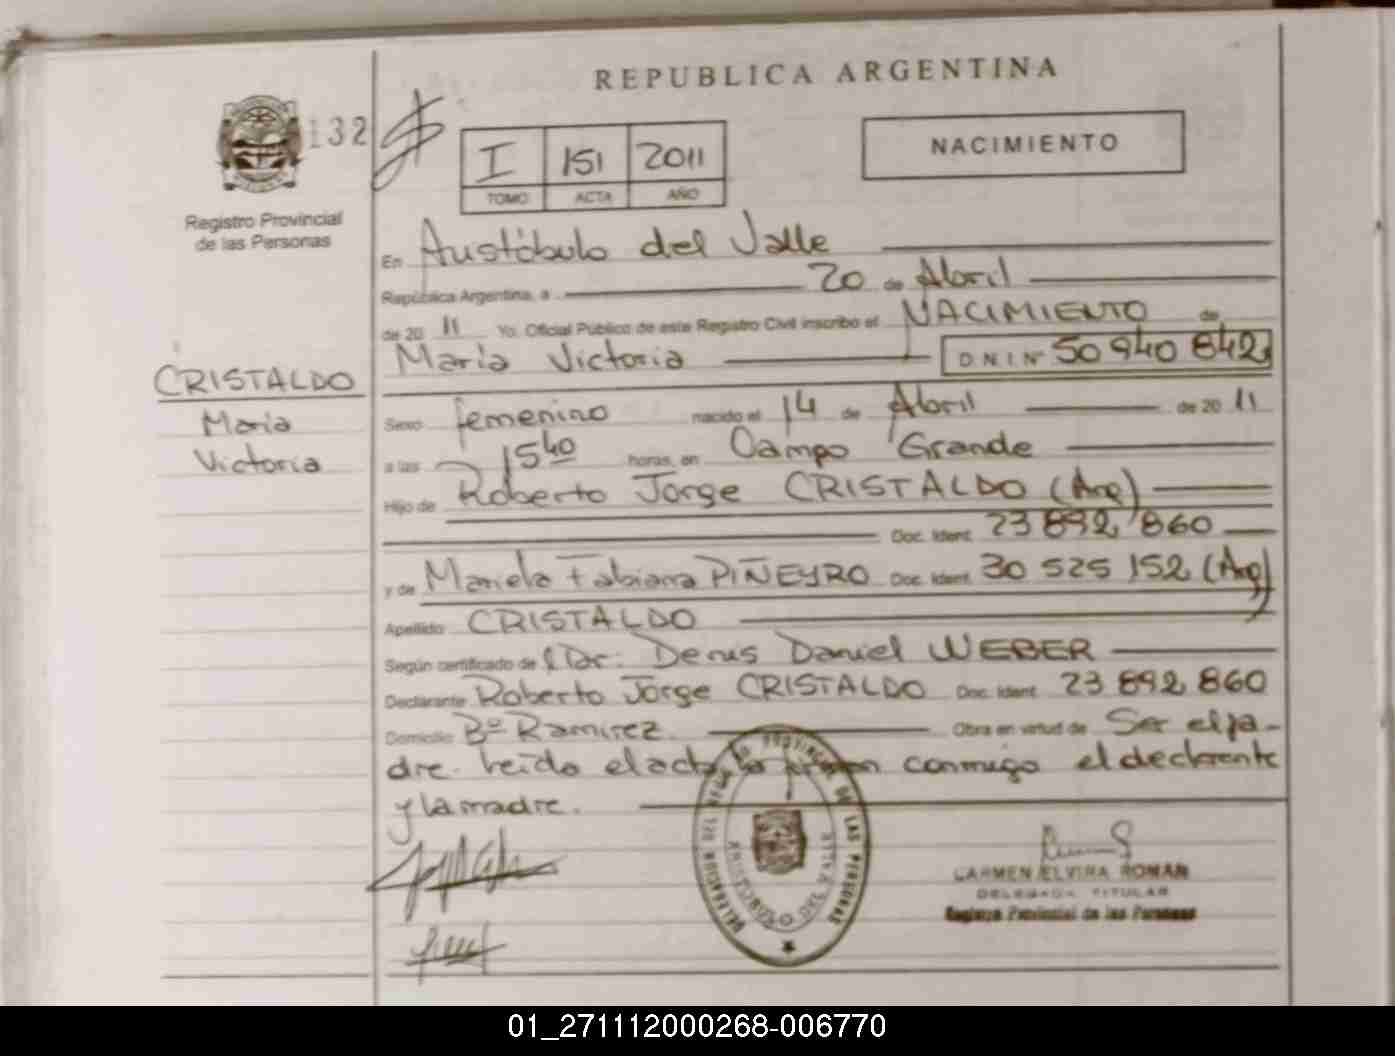 REPUBLICA ARGENTINA
132
I 151 2011
TOMO ACTA AÑO
NACIMIENTO
Registro Provincial
de las Personas
En Aristóbulo del Valle
República Argentina, a 20 de Abril
de 20 11 Yo, Oficial Público de este Registro Civil inscribo el NACIMIENTO de
María Victoria D.N.I. Nº 50 940 842
CRISTALDO
María
Victoria
Sexo femenino nacido el 14 de Abril de 20 11
a las 15 40 horas, en Campo Grande
Hijo de Roberto Jorge CRISTALDO (Arg)
Doc. Ident. 23 892 860
y de Mariela Fabiana PIÑEYRO Doc. Ident. 30 525 152 (Arg)
Apellido CRISTALDO
Según certificado de Dr. Denis Daniel WEBER
Declarante Roberto Jorge CRISTALDO Doc. Ident. 23 892 860
Domicilio Bº Ramirez Obra en virtud de Ser el pa-
dre. Leído el acta la firman conmigo el declarante
y la madre.
REGISTRO PROVINCIAL DE LAS PERSONAS
DELEGACION
ARISTOBULO DEL VALLE
CARMEN ELVIRA ROMAN
DELEGADA TITULAR
Registro Provincial de las Personas
01_271112000268-006770